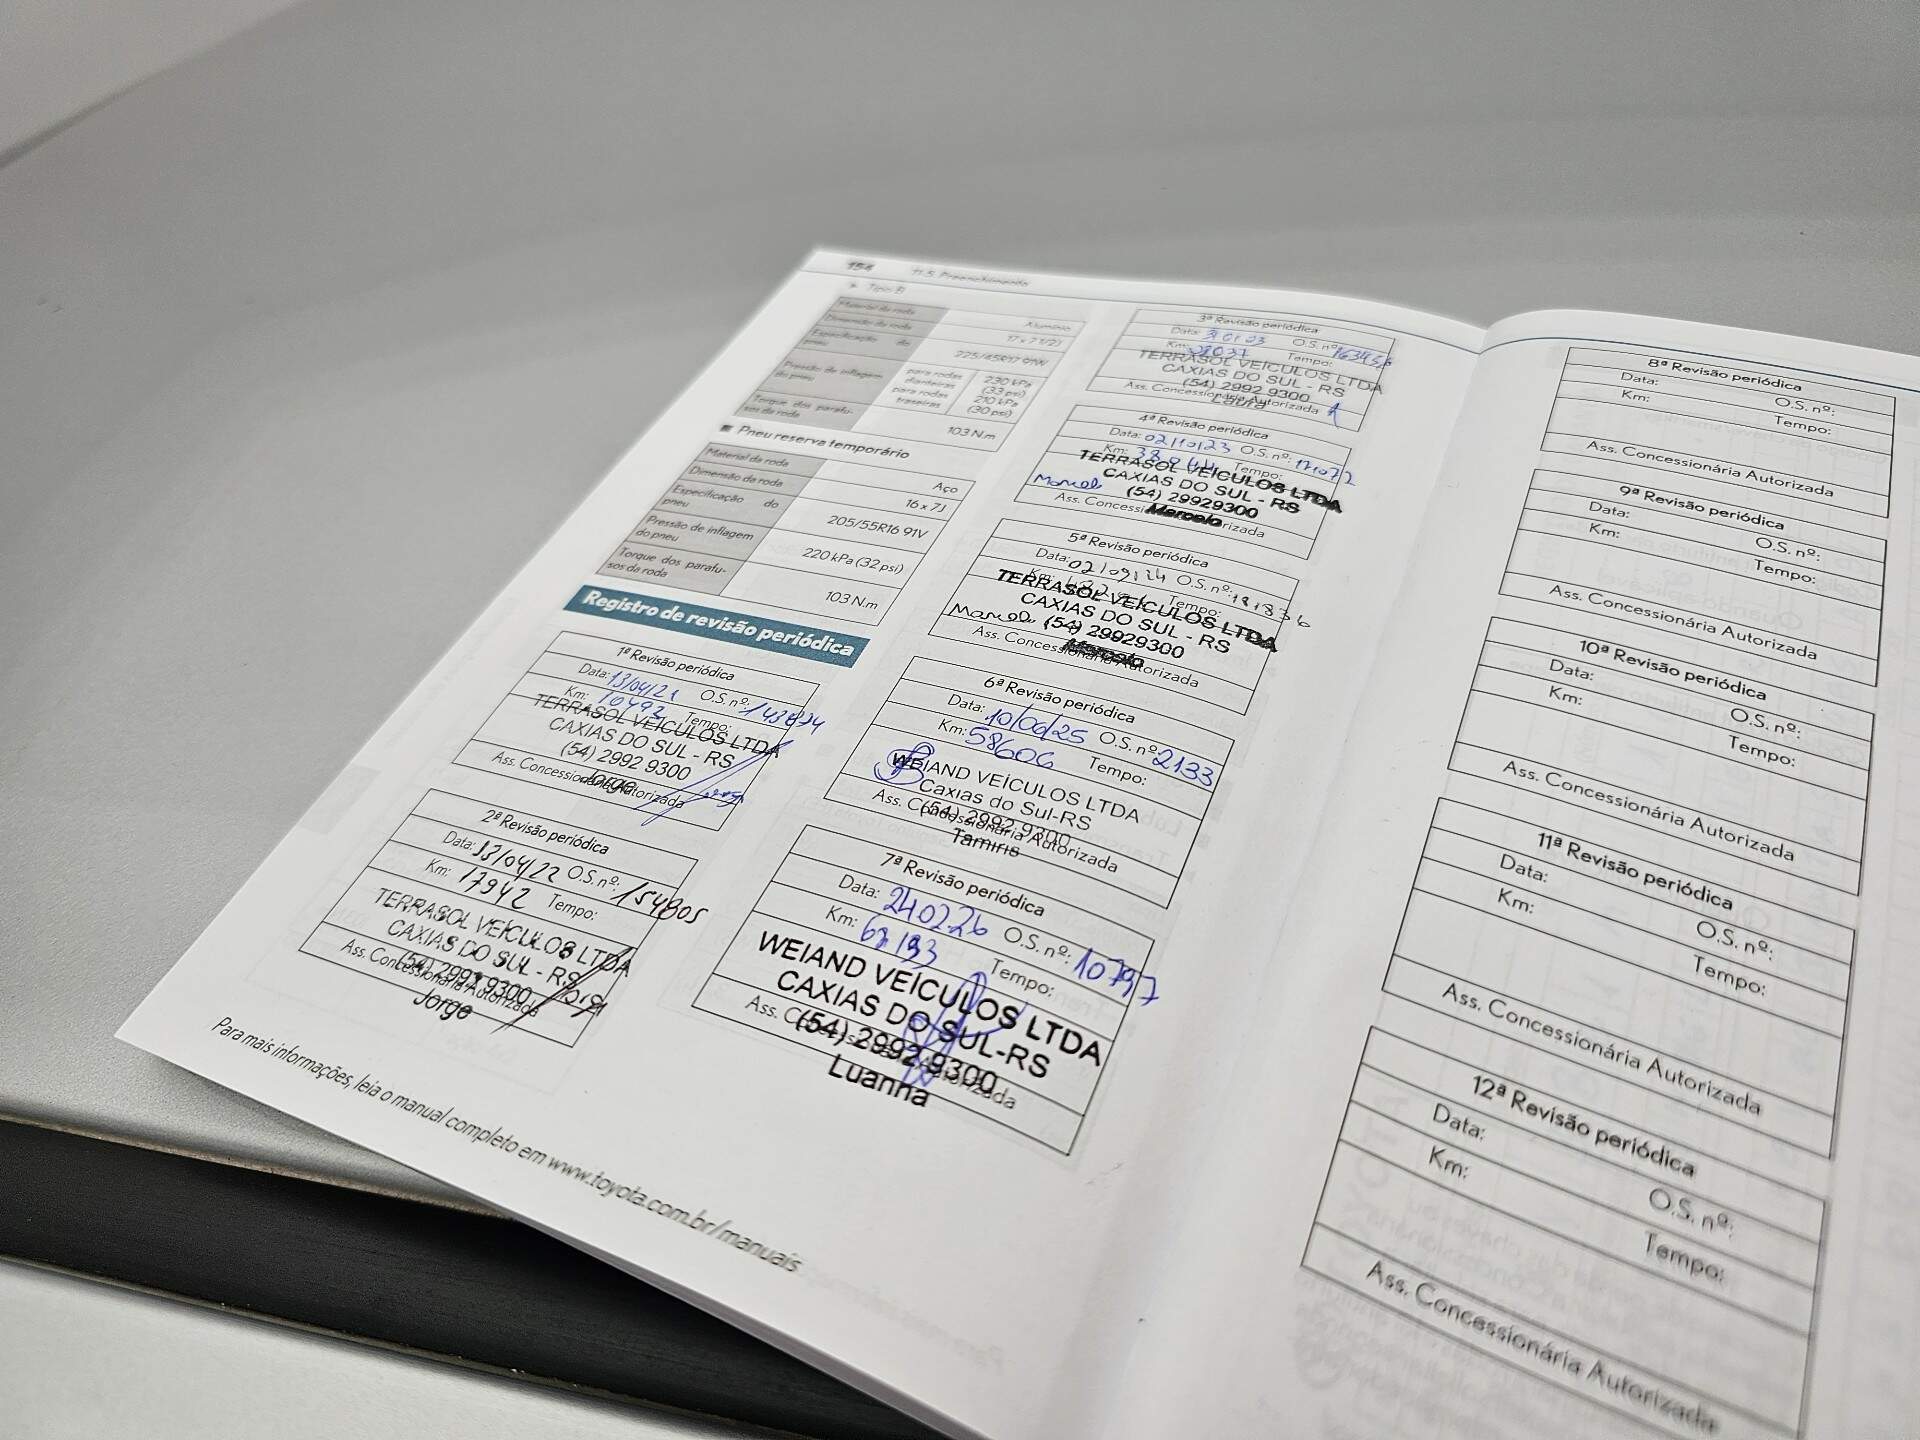 154 11.5. Preenchimento
Tipo B
Material da roda Alumínio
Dimensão da roda 17 x 7 1/2J
Especificação do pneu 225/45R17 91W
Pressão de inflagem do pneu
para rodas dianteiras 230 kPa (33 psi)
para rodas traseiras 210 kPa (30 psi)
Torque dos parafusos da roda 103 N.m
■ Pneu reserva temporário
Material da roda Aço
Dimensão da roda 16 x 7J
Especificação do pneu 205/55R16 91V
Pressão de inflagem do pneu 220 kPa (32 psi)
Torque dos parafusos da roda 103 N.m
Registro de revisão periódica
1ª Revisão periódica
Data: 13/04/21 O.S. nº:
Km: 10492 Tempo:
TERRASOL VEICULOS LTDA
CAXIAS DO SUL - RS
(54) 2992 9300
Ass. Concessionária Autorizada
Jorge
2ª Revisão periódica
Data: 13/04/22 O.S. nº: 154805
Km: 17942 Tempo:
TERRASOL VEICULOS LTDA
CAXIAS DO SUL - RS
(54) 2992 9300
Ass. Concessionária Autorizada
Jorge
3ª Revisão periódica
Data: O.S. nº:
Km: Tempo:
TERRASOL VEICULOS LTDA
CAXIAS DO SUL - RS
(54) 2992 9300
Ass. Concessionária Autorizada
Laura
4ª Revisão periódica
Data: 02/10/23 O.S. nº:
Km: Tempo:
TERRASOL VEICULOS LTDA
CAXIAS DO SUL - RS
(54) 29929300
Ass. Concessionária Autorizada
Marcelo
5ª Revisão periódica
Data: 02/09/24 O.S. nº:
Km: Tempo: 181836
TERRASOL VEICULOS LTDA
CAXIAS DO SUL - RS
(54) 29929300
Ass. Concessionária Autorizada
Marcelo
6ª Revisão periódica
Data: 10/06/25 O.S. nº: 2133
Km: 58606 Tempo:
WEIAND VEÍCULOS LTDA
Caxias do Sul-RS
(54) 2992 9300
Ass. Concessionária Autorizada
Tamiris
7ª Revisão periódica
Data: 240226 O.S. nº: 10797
Km: Tempo:
WEIAND VEÍCULOS LTDA
CAXIAS DO SUL-RS
(54) 2992.9300
Ass. Concessionária Autorizada
Luanna
Para mais informações, leia o manual completo em www.toyota.com.br/manuais
8ª Revisão periódica
Data: O.S. nº:
Km: Tempo:
Ass. Concessionária Autorizada
9ª Revisão periódica
Data: O.S. nº:
Km: Tempo:
Ass. Concessionária Autorizada
10ª Revisão periódica
Data: O.S. nº:
Km: Tempo:
Ass. Concessionária Autorizada
11ª Revisão periódica
Data: O.S. nº:
Km: Tempo:
Ass. Concessionária Autorizada
12ª Revisão periódica
Data: O.S. nº:
Km: Tempo:
Ass. Concessionária Autorizada